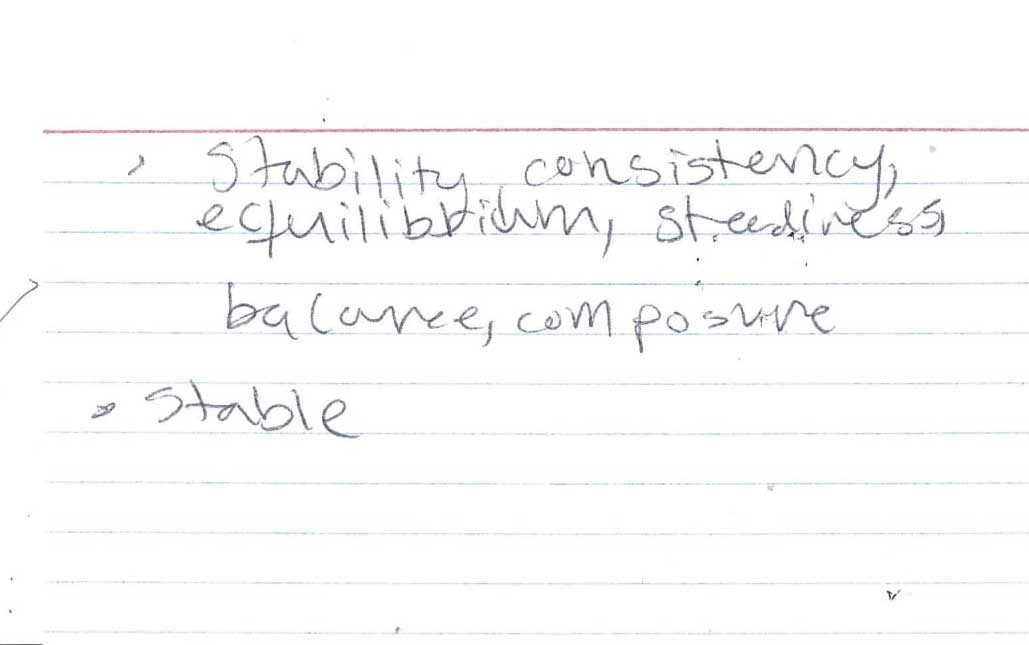 Stability, consistency,
equilibrium, steediness,
balance, composure
• Stable